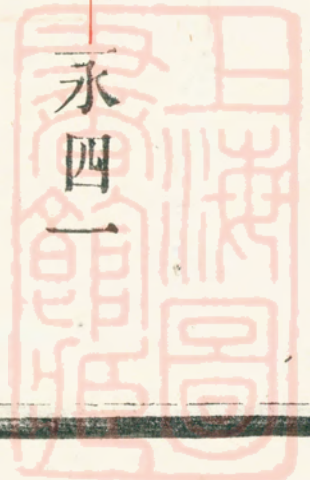 永四一
上海圖
書館藏